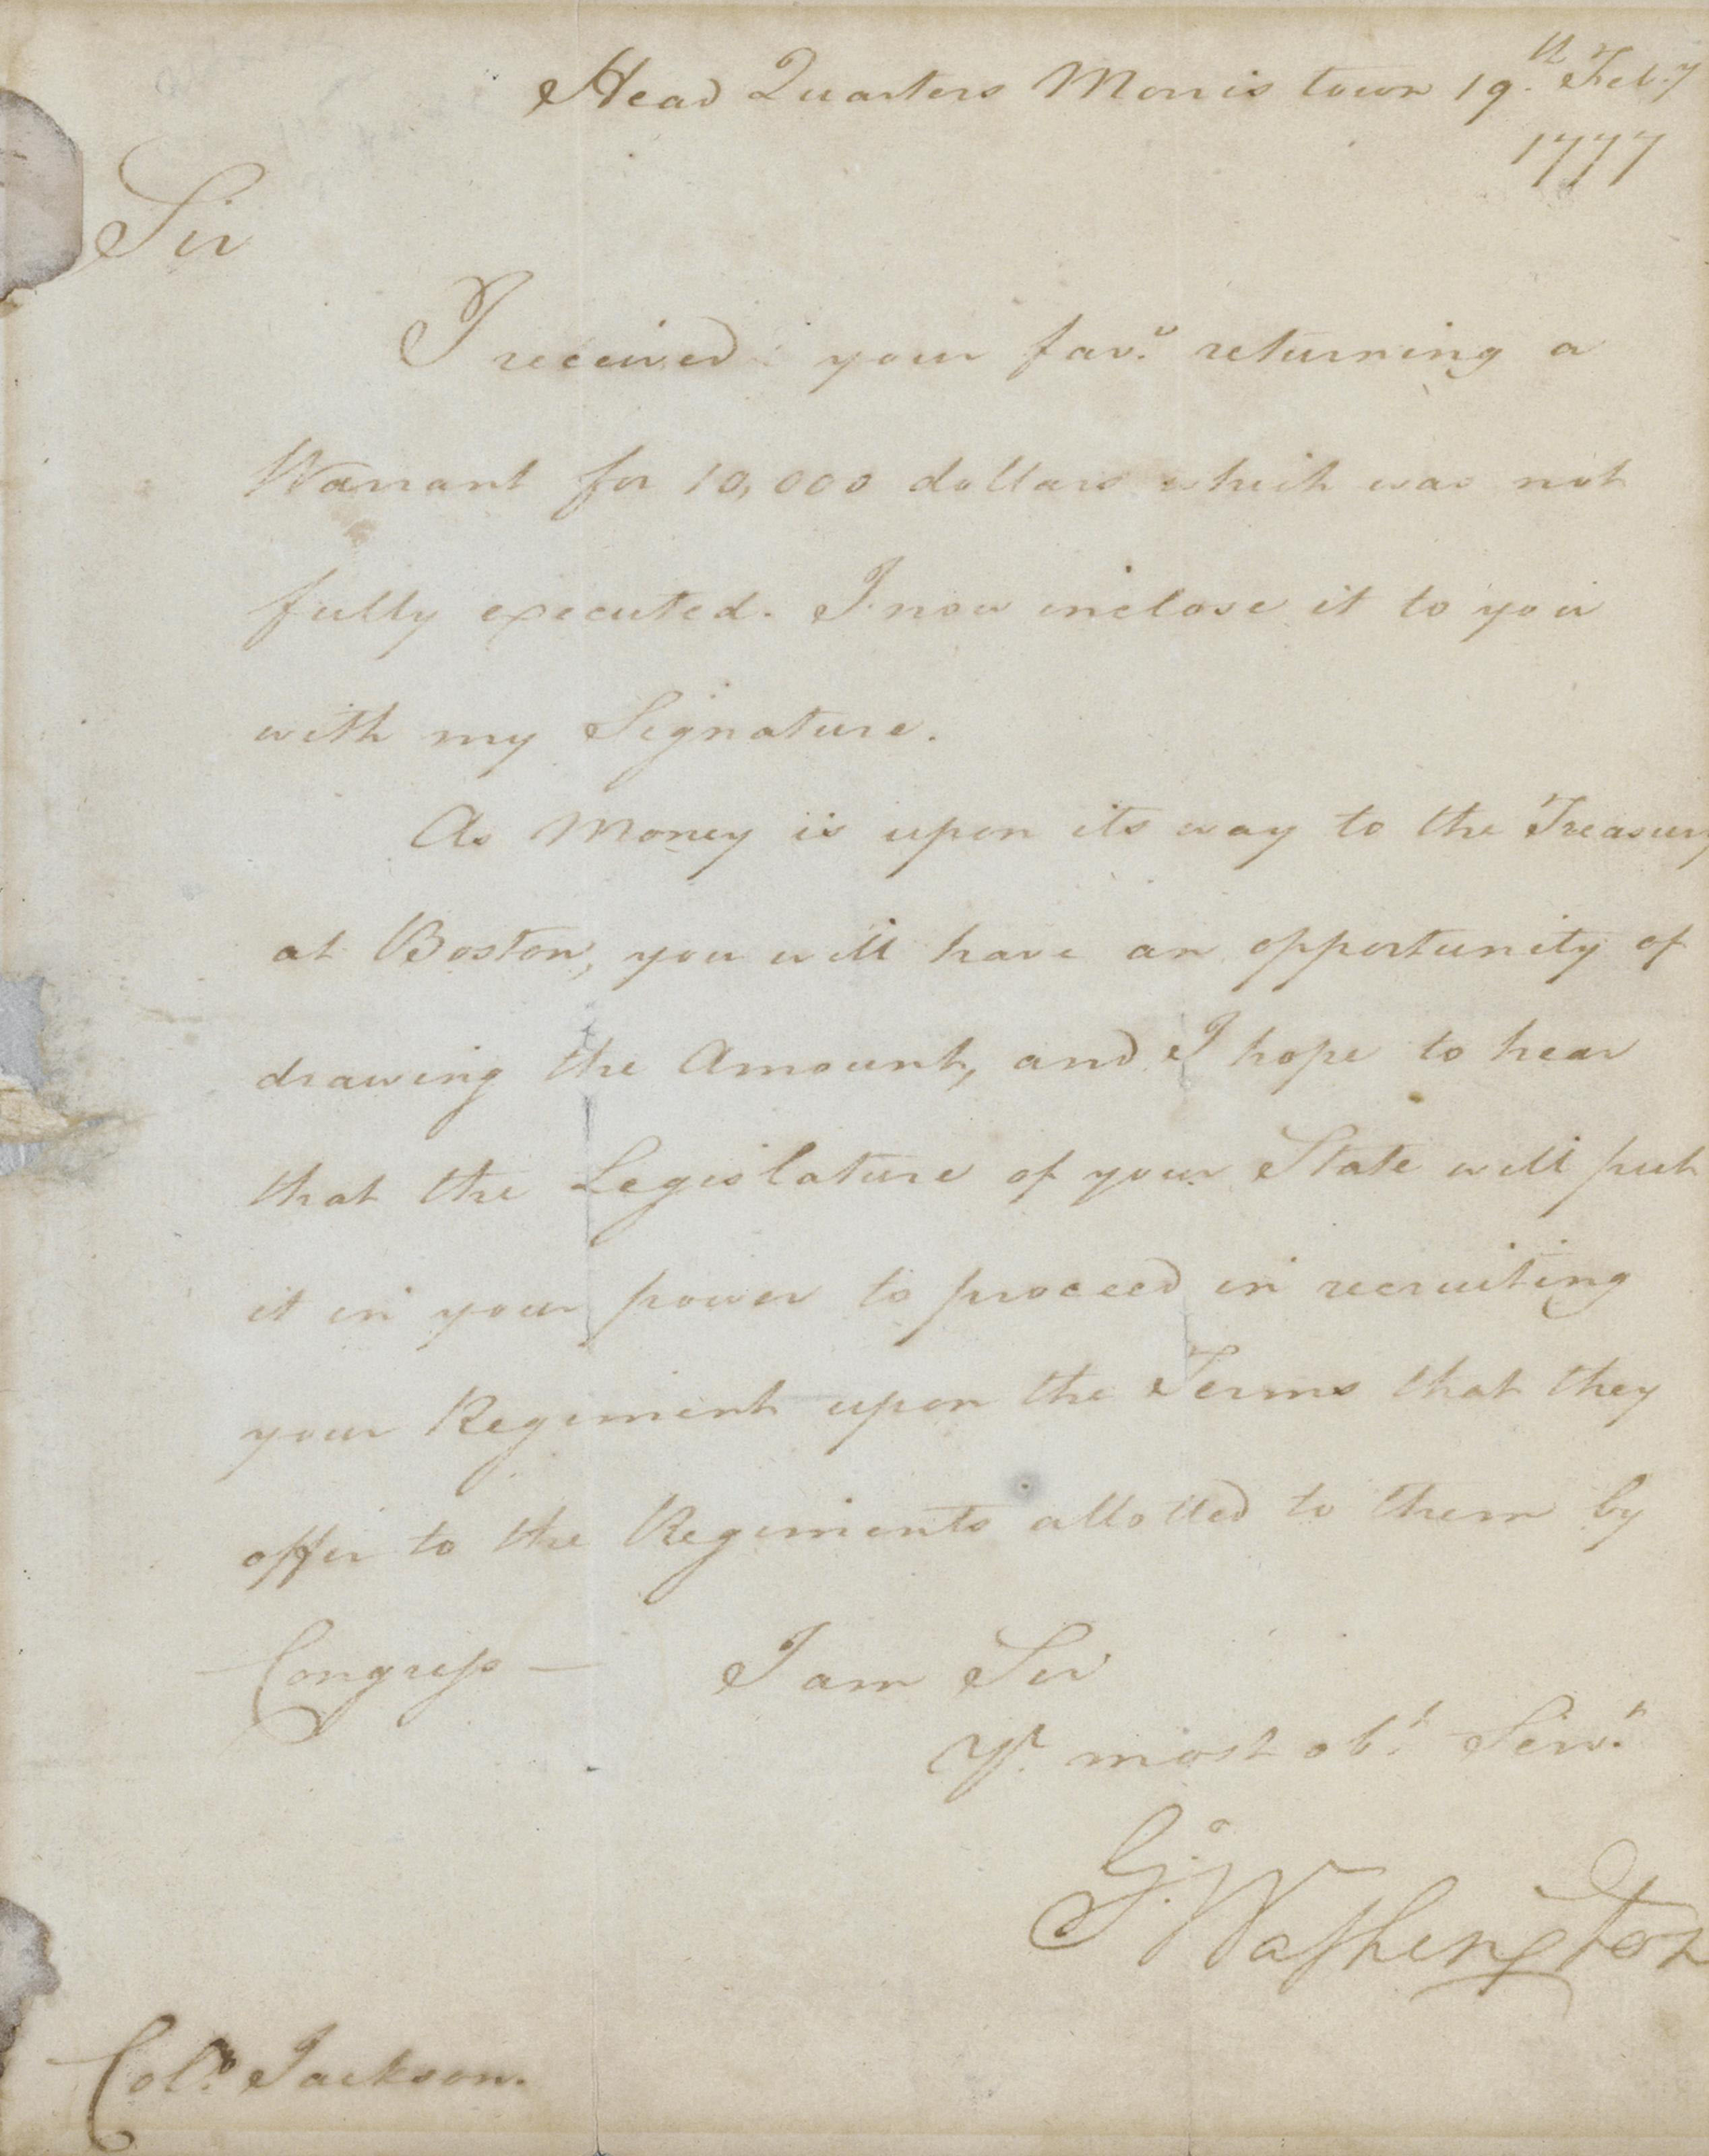 Head Quarters Morris town 19.th Feby
1777
Sir
I received your favr. returning a
Warrant for 10,000 dollars which was not
fully executed. I now inclose it to you
with my Signature.
As Money is upon its way to the Treasury
at Boston, you will have an opportunity of
drawing the Amount, and I hope to hear
that the Legislature of your State will put
it in your power to proceed in recruiting
your Regiment upon the Terms that they
offer to the Regiments allotted to them by
Congress — I am Sir
Yr. most obt. Servt.
Go. Washington
Colo. Jackson.